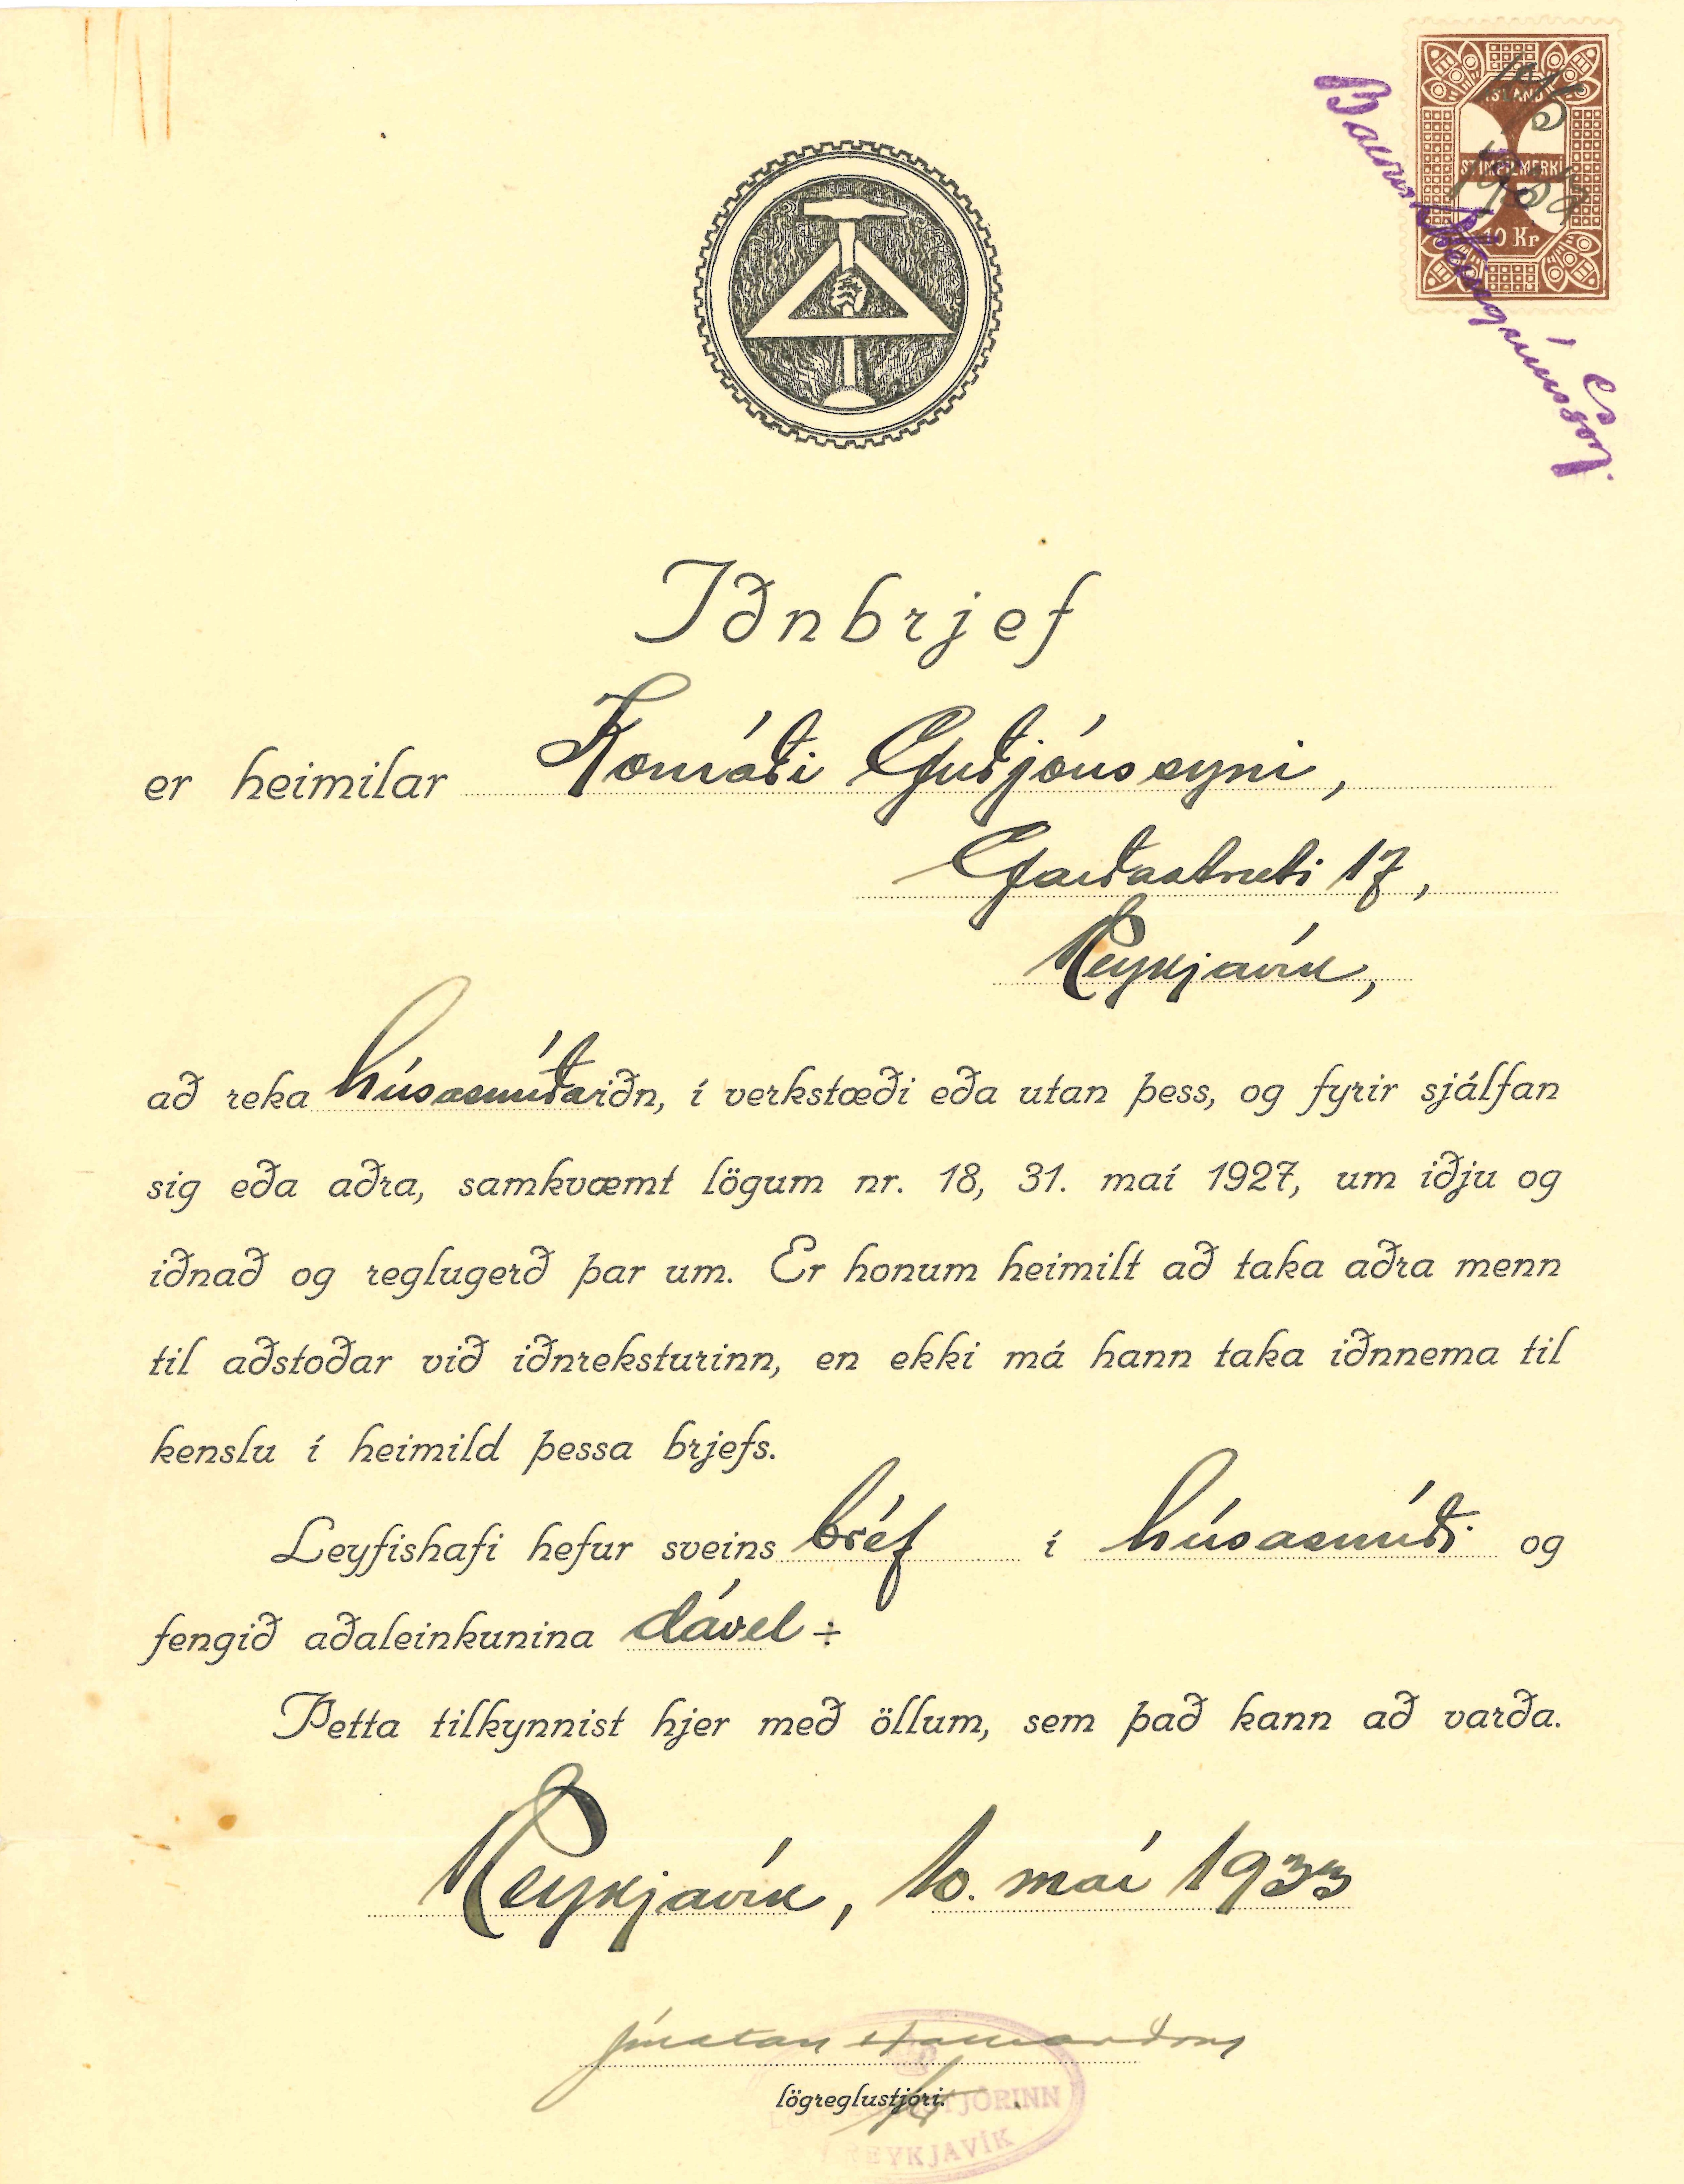 ÍSLAND
STIMPILMERKI
10 Kr
Iðnbrjef
er heimilar Konráði Guðjónssyni,
Garðastræti 17,
Reykjavík,
að reka húsasmíðaiðn, í verkstæði eða utan þess, og fyrir sjálfan
sig eða aðra, samkvæmt lögum nr. 18, 31. maí 1927, um iðju og
iðnað og reglugerð þar um. Er honum heimilt að taka aðra menn
til aðstoðar við iðnreksturinn, en ekki má hann taka iðnnema til
kenslu í heimild þessa brjefs.
Leyfishafi hefur sveins bréf í húsasmíði og
fengið aðaleinkunina dável ÷
Þetta tilkynnist hjer með öllum, sem það kann að varða.
Reykjavík, 10. maí 1933
lögreglustjóri.
STJÓRINN
REYKJAVÍK